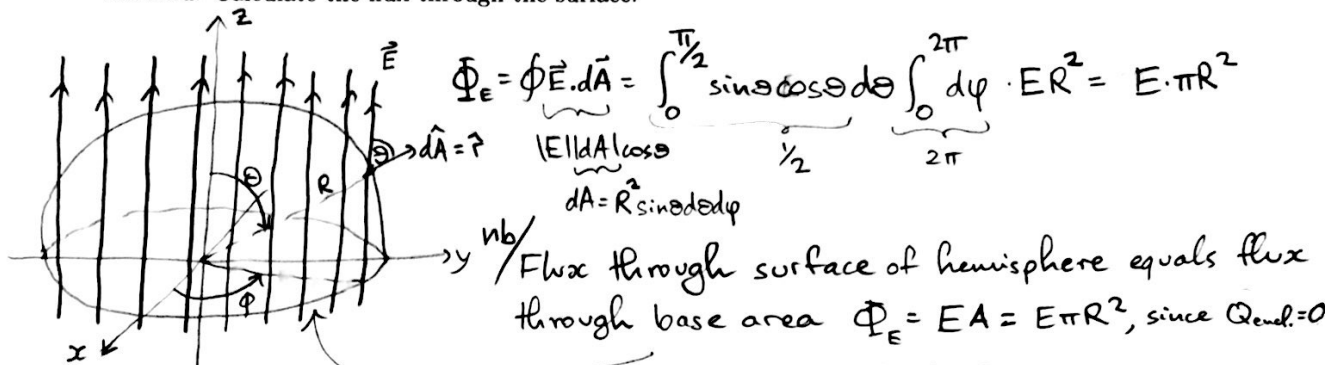 Calculate the flux through the surface.
z
E⃗
Φ_E = ∮E⃗.dA⃗ = ∫₀^{π/2} sinθcosθdθ ∫₀^{2π} dφ · ER² = E·πR²
|E||dA|cosθ
1/2
2π
dA = R²sinθdθdφ
θ
dÂ = r̂
Θ
R
y
nb/ Flux through surface of hemisphere equals flux
through base area Φ_E = EA = EπR², since Q_encl. = 0
φ
x